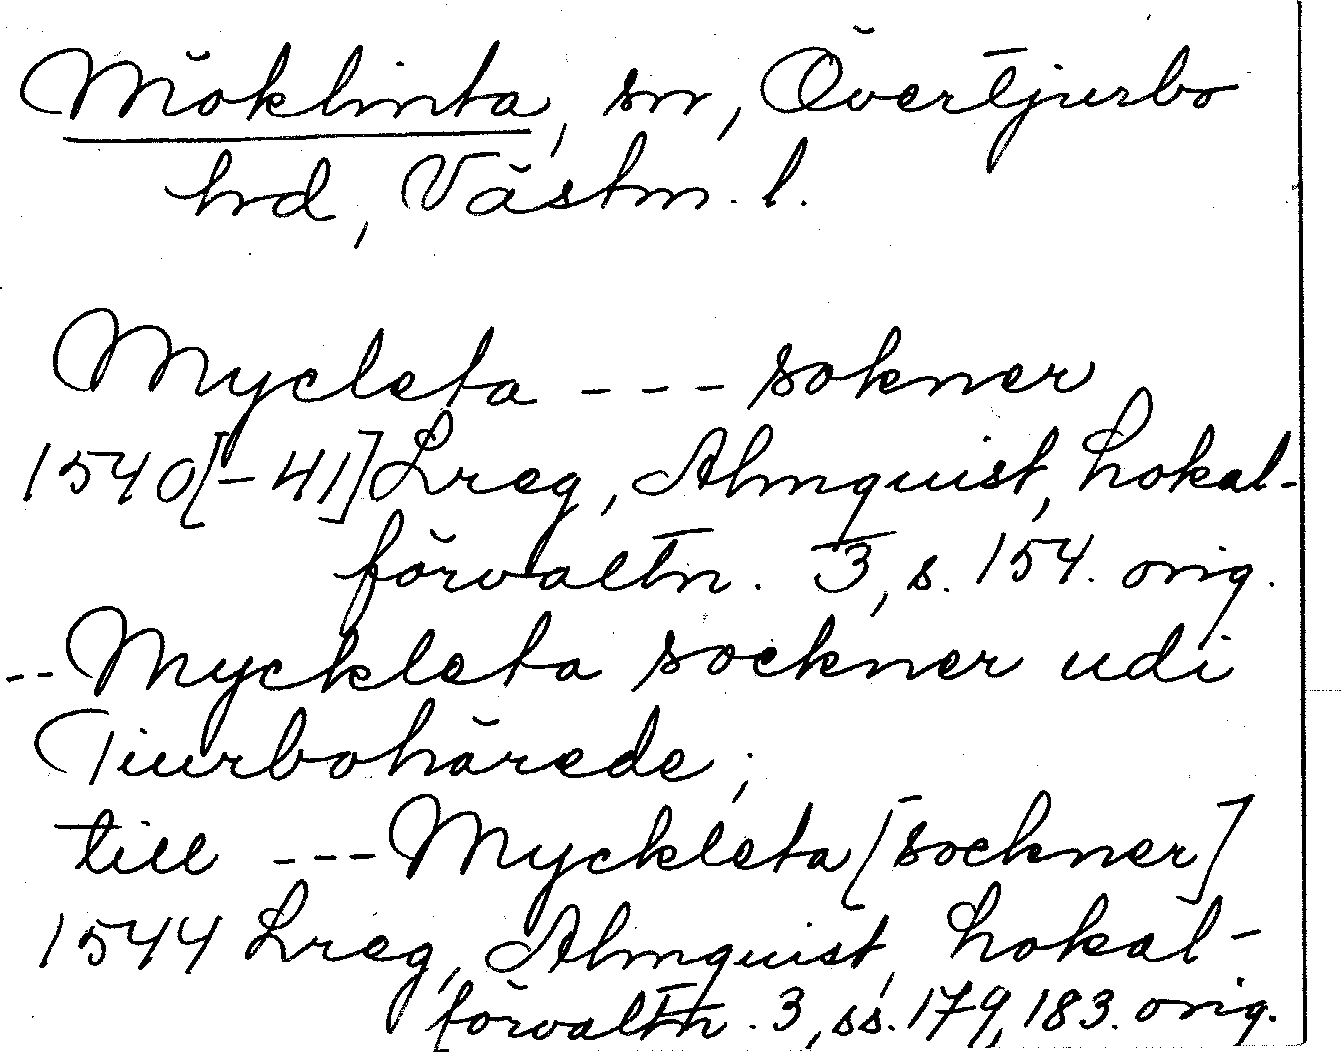 Möklinta, sn, Övertjurbo
hrd, Västm. l.
Mycleta --- sokner
1540[-41] Lreg, Almquist, Lokal-
förvaltn. 3, s. 154. orig.
-- Myckleta sockner udi
Tiurbohärede;
till --- Myckleta [sockner]
1544 Lreg, Almquist, Lokal-
förvaltn. 3, ss. 179, 183. orig.